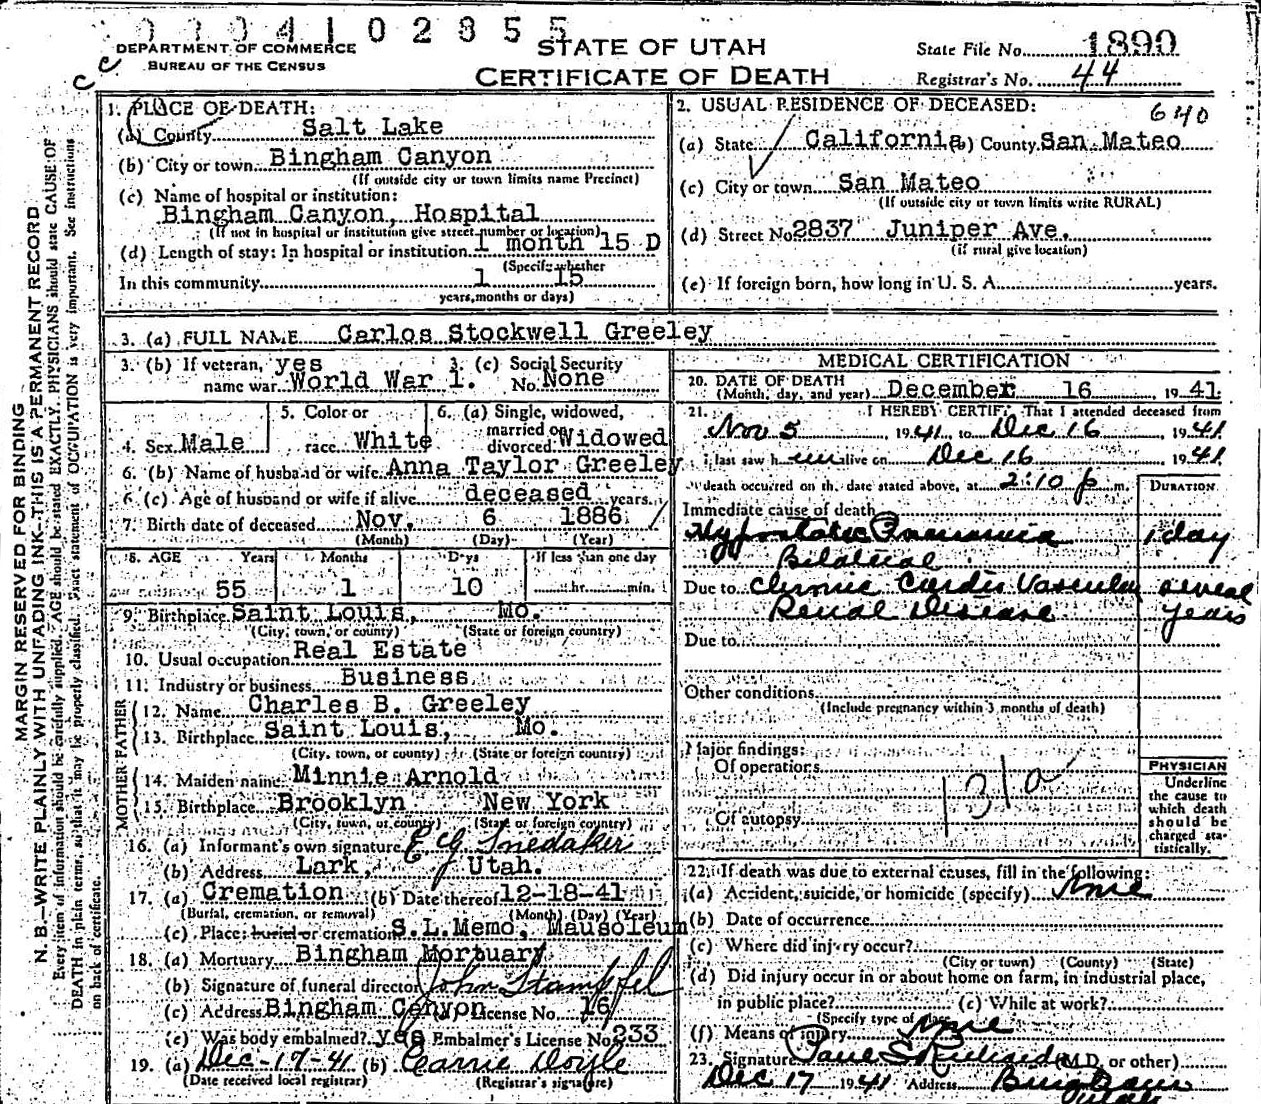 0 3 0 4 1 0 2 8 5 5
DEPARTMENT OF COMMERCE
BUREAU OF THE CENSUS
STATE OF UTAH
CERTIFICATE OF DEATH
State File No. 1890
Registrar's No. 44
MARGIN RESERVED FOR BINDING
N. B.—WRITE PLAINLY WITH UNFADING INK—THIS IS A PERMANENT RECORD
Every item of information should be carefully supplied. AGE should be stated EXACTLY. PHYSICIANS should state CAUSE OF
DEATH in plain terms, so that it may be properly classified. Exact statement of OCCUPATION is very important. See instructions
on back of certificate.
1. PLACE OF DEATH:
(a) County Salt Lake
(b) City or town Bingham Canyon
(If outside city or town limits name Precinct)
(c) Name of hospital or institution:
Bingham Canyon Hospital
(If not in hospital or institution give street number or location)
(d) Length of stay: In hospital or institution 1 month 15 D
(Specify whether
In this community 1 15
years, months or days)
2. USUAL RESIDENCE OF DECEASED:
640
(a) State California (b) County San Mateo
(c) City or town San Mateo
(If outside city or town limits write RURAL)
(d) Street No. 2837 Juniper Ave.
(if rural give location)
(e) If foreign born, how long in U. S. A. years.
3. (a) FULL NAME Carlos Stockwell Greeley
3. (b) If veteran, yes
name war World War 1.
3. (c) Social Security
No. None
4. Sex Male
5. Color or
race White
6. (a) Single, widowed,
married or
divorced Widowed
6. (b) Name of husband or wife Anna Taylor Greeley
6. (c) Age of husband or wife if alive deceased years.
7. Birth date of deceased Nov. 6 1886
(Month) (Day) (Year)
8. AGE Years Months Days If less than one day
55 1 10 hr. min.
9. Birthplace Saint Louis, Mo.
(City, town, or county) (State or foreign country)
10. Usual occupation Real Estate
11. Industry or business Business
FATHER
12. Name Charles B. Greeley
13. Birthplace Saint Louis, Mo.
(City, town, or county) (State or foreign country)
MOTHER
14. Maiden name Minnie Arnold
15. Birthplace Brooklyn New York
(City, town, or county) (State or foreign country)
16. (a) Informant's own signature E G Snedaker
(b) Address Lark, Utah.
17. (a) Cremation (b) Date thereof 12-18-41
(Burial, cremation, or removal) (Month) (Day) (Year)
(c) Place: burial or cremation S.L.Memo. Mausoleum
18. (a) Mortuary Bingham Mortuary
(b) Signature of funeral director John Stampfel
(c) Address Bingham Canyon License No. 16
(e) Was body embalmed? yes Embalmer's License No. 233
19. (a) Dec-17-41 (b) Carrie Doyle
(Date received local registrar) (Registrar's signature)
MEDICAL CERTIFICATION
20. DATE OF DEATH
(Month, day, and year) December 16 1941
21. I HEREBY CERTIFY That I attended deceased from
Nov 5, 1941 to Dec 16, 1941
I last saw him alive on Dec 16 1941
death occurred on the date stated above, at 2:10 p m.
DURATION
Immediate cause of death
Hypostatic Pneumonia 1 day
Bilateral
Due to Chronic Cardio Vascular several
Renal Disease years
Due to
Other conditions
(Include pregnancy within 3 months of death)
Major findings:
Of operations
131a
Of autopsy
PHYSICIAN
Underline
the cause to
which death
should be
charged sta-
tistically.
22. If death was due to external causes, fill in the following:
(a) Accident, suicide, or homicide (specify) None
(b) Date of occurrence
(c) Where did injury occur?
(City or town) (County) (State)
(d) Did injury occur in or about home on farm, in industrial place,
in public place? (e) While at work?
(Specify type of place
(f) Means of injury None
23. Signature Paul S Richards (M.D. or other)
Dec 17 1941 Address Bingham
Utah